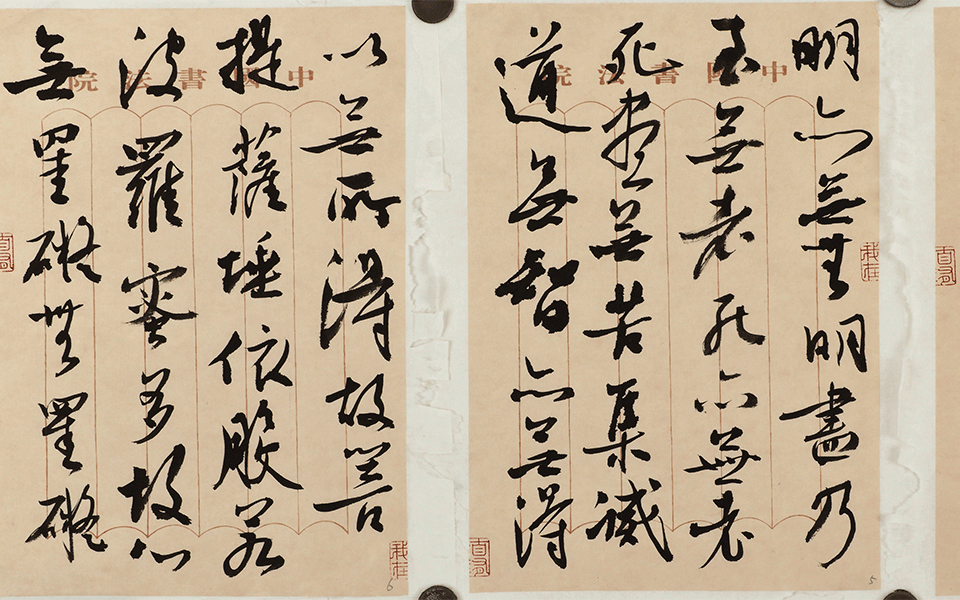 中國書法院
明亦無無明盡乃
至無老死亦無老
死盡無苦集滅
道無智亦無得
5
中國書法院
以無所得故菩
提薩埵依般若
波羅蜜多故心
無罣礙無罣礙
6